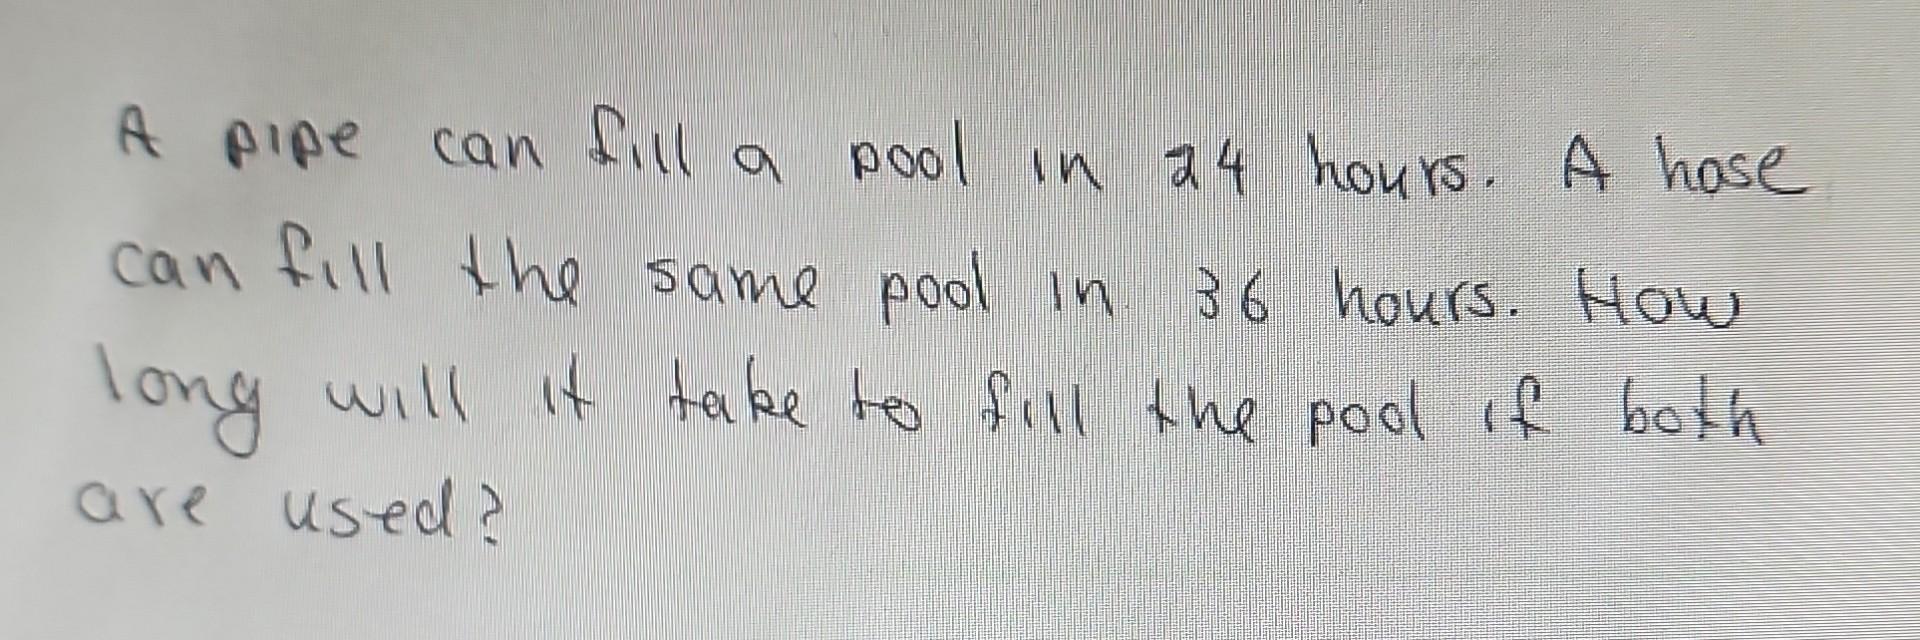 A pipe can fill a pool in 24 hours. A hose
can fill the same pool in 36 hours. How
long will it take to fill the pool if both
are used?